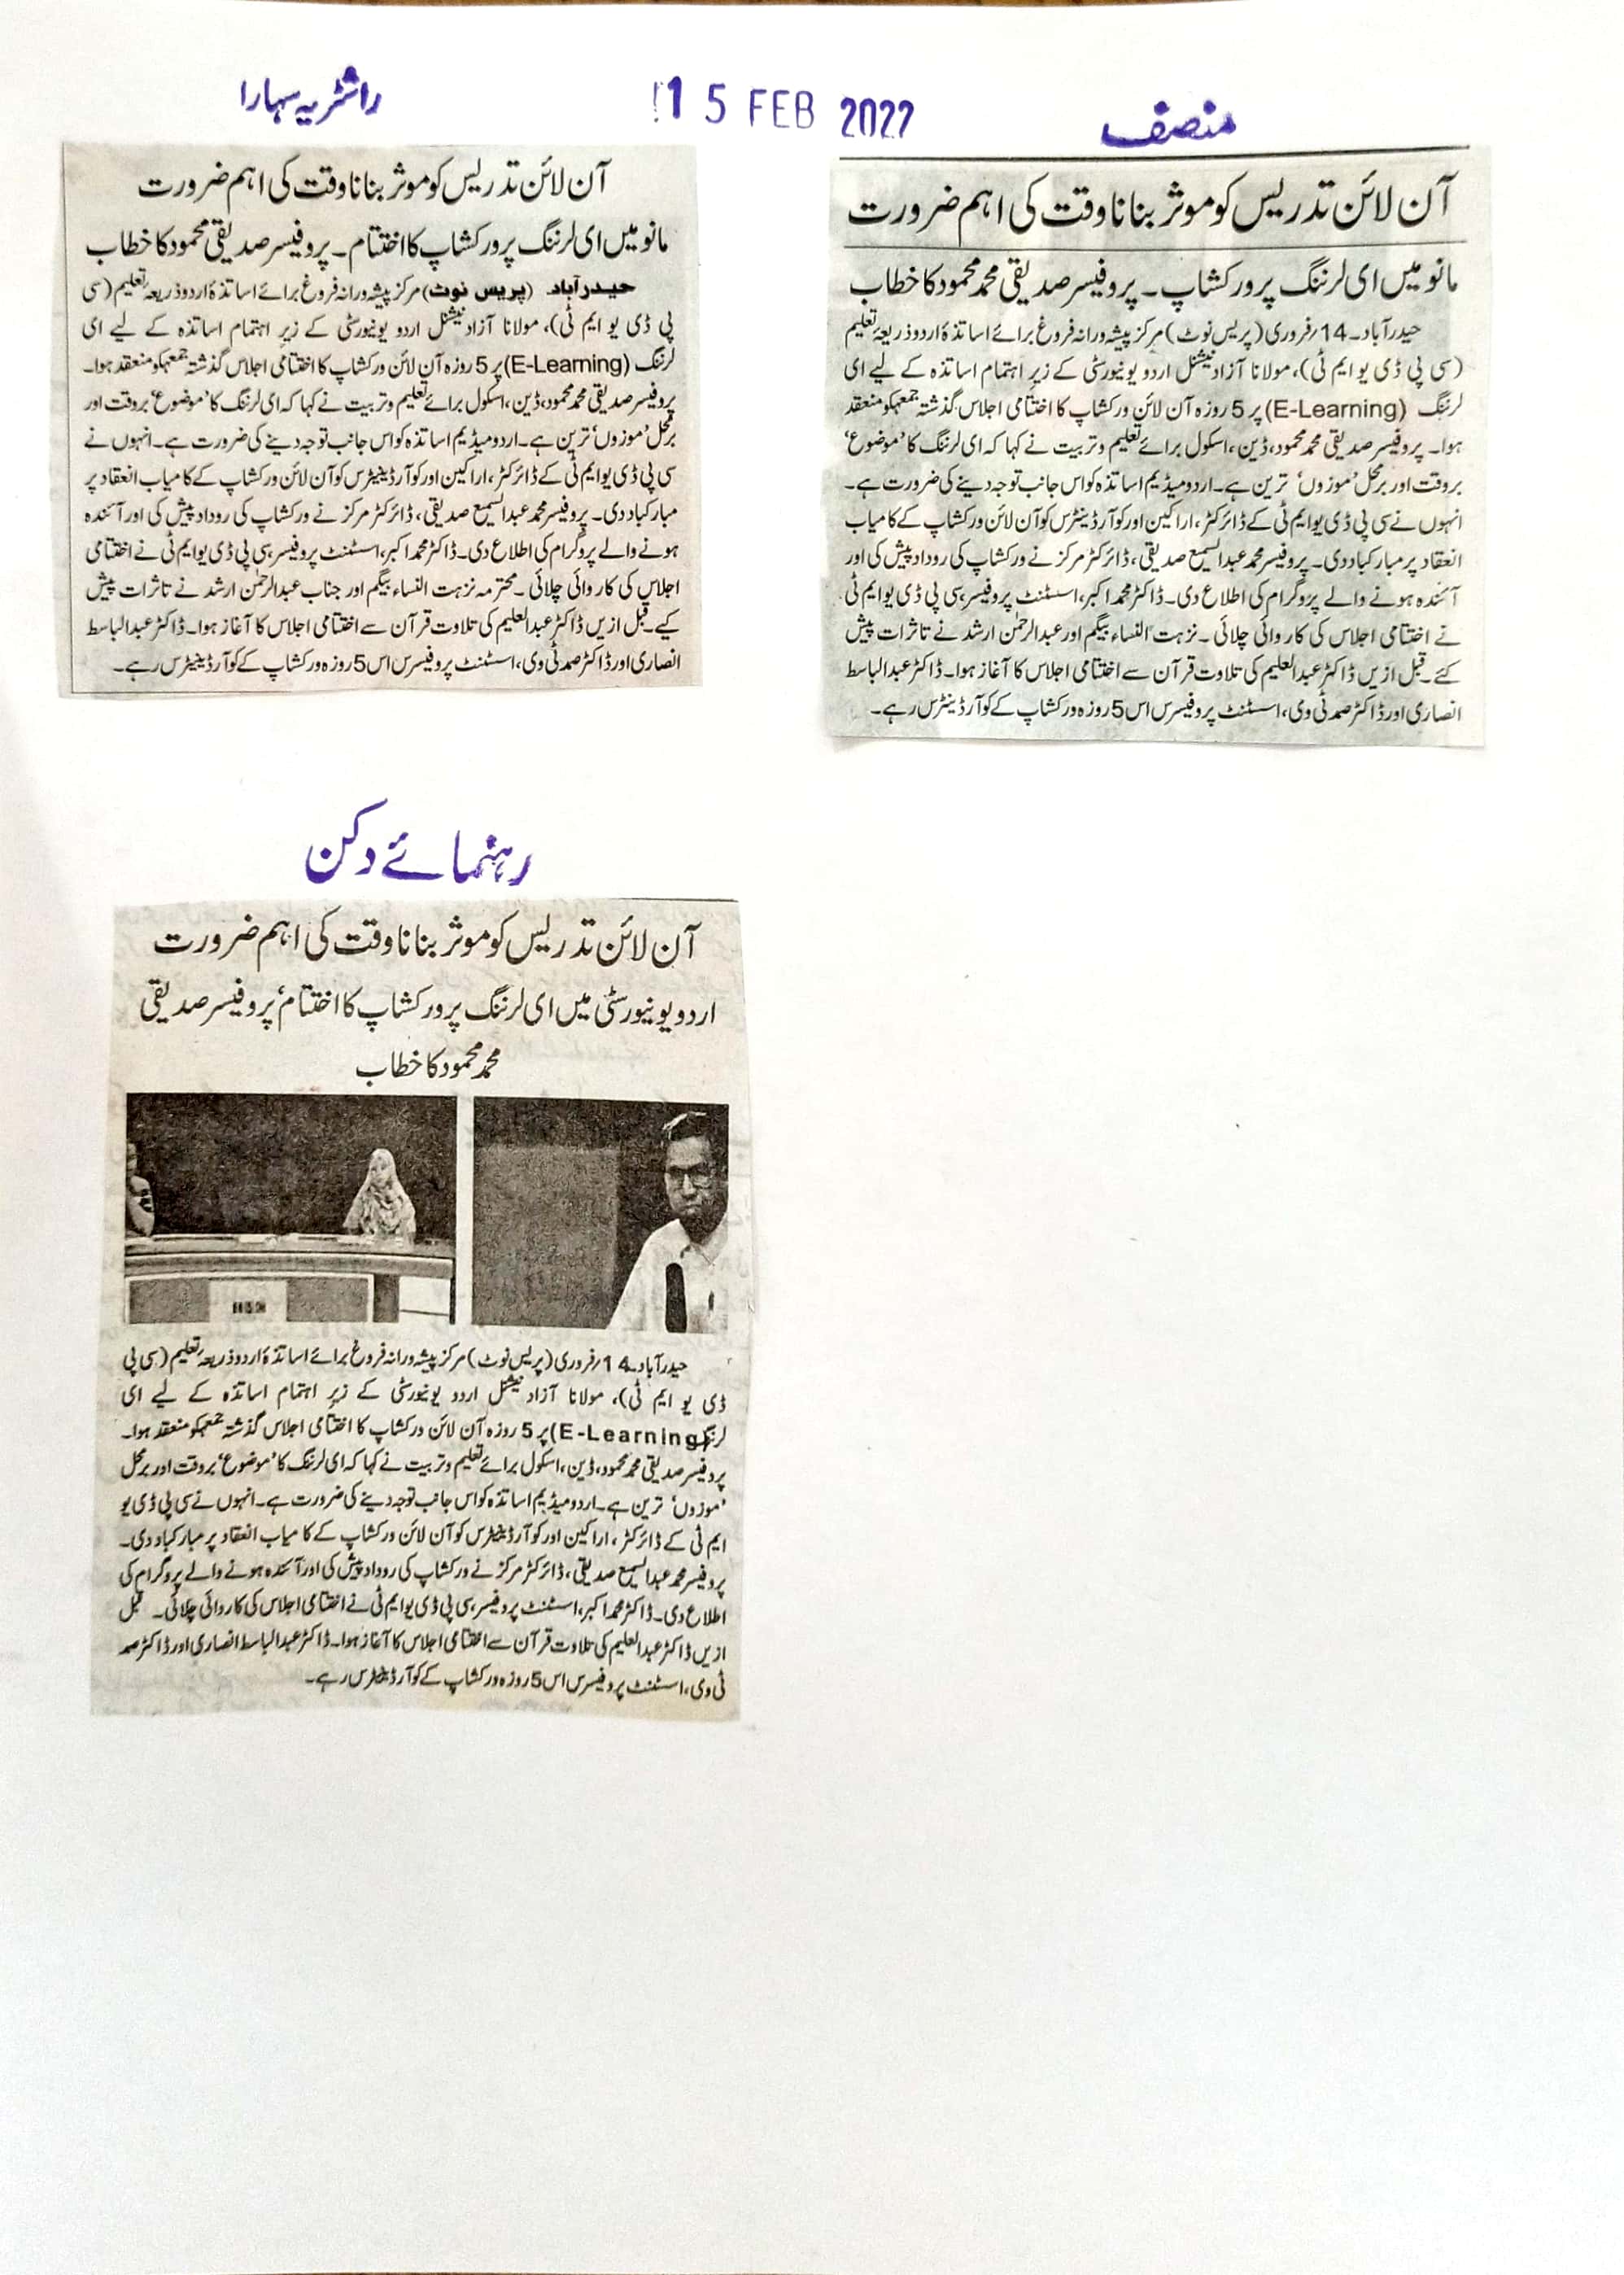 راشٹریہ سہارا
15 FEB 2022
منصف
آن لائن تدریس کو موثر بنانا وقت کی اہم ضرورت
مانو میں ای لرننگ پر ورکشاپ کا اختتام۔ پروفیسر صدیقی محمود کا خطاب
حیدرآباد۔ (پریس نوٹ) مرکز پیشہ ورانہ فروغ برائے اساتذۂ اردو ذریعہ تعلیم (سی
پی ڈی یو ایم ٹی)، مولانا آزاد نیشنل اردو یونیورسٹی کے زیر اہتمام اساتذہ کے لیے ای
لرننگ (E-Learning) پر 5 روزہ آن لائن ورکشاپ کا اختتامی اجلاس گذشتہ جمعہ کو منعقد ہوا۔
پروفیسر صدیقی محمد محمود، ڈین، اسکول برائے تعلیم و تربیت نے کہا کہ ای لرننگ کا ’موضوع‘ بروقت اور
برمحل ’موزوں‘ ترین ہے۔ اردو میڈیم اساتذہ کو اس جانب توجہ دینے کی ضرورت ہے۔ انہوں نے
سی پی ڈی یو ایم ٹی کے ڈائرکٹر، اراکین اور کوآرڈینیٹرس کو آن لائن ورکشاپ کے کامیاب انعقاد پر
مبارکباد دی۔ پروفیسر محمد عبدالسمیع صدیقی، ڈائرکٹر مرکز نے ورکشاپ کی روداد پیش کی اور آئندہ
ہونے والے پروگرام کی اطلاع دی۔ ڈاکٹر محمد اکبر، اسسٹنٹ پروفیسر، سی پی ڈی یو ایم ٹی نے اختتامی
اجلاس کی کاروائی چلائی۔ محترمہ نزہت النساء بیگم اور جناب عبدالرحمٰن ارشد نے تاثرات پیش
کیے۔ قبل ازیں ڈاکٹر عبدالعلیم کی تلاوت قرآن سے اختتامی اجلاس کا آغاز ہوا۔ ڈاکٹر عبدالباسط
انصاری اور ڈاکٹر صمد ٹی وی، اسسٹنٹ پروفیسرس اس 5 روزہ ورکشاپ کے کوآرڈینیٹرس رہے۔
آن لائن تدریس کو موثر بنانا وقت کی اہم ضرورت
مانو میں ای لرننگ پر ورکشاپ۔ پروفیسر صدیقی محمد محمود کا خطاب
حیدرآباد۔ 14/فروری (پریس نوٹ) مرکز پیشہ ورانہ فروغ برائے اساتذۂ اردو ذریعہ تعلیم
(سی پی ڈی یو ایم ٹی)، مولانا آزاد نیشنل اردو یونیورسٹی کے زیر اہتمام اساتذہ کے لیے ای
لرننگ (E-Learning) پر 5 روزہ آن لائن ورکشاپ کا اختتامی اجلاس گذشتہ جمعہ کو منعقد
ہوا۔ پروفیسر صدیقی محمد محمود، ڈین، اسکول برائے تعلیم و تربیت نے کہا کہ ای لرننگ کا ’موضوع‘
بروقت اور برمحل ’موزوں‘ ترین ہے۔ اردو میڈیم اساتذہ کو اس جانب توجہ دینے کی ضرورت ہے۔
انہوں نے سی پی ڈی یو ایم ٹی کے ڈائرکٹر، اراکین اور کوآرڈینٹرس کو آن لائن ورکشاپ کے کامیاب
انعقاد پر مبارکباد دی۔ پروفیسر محمد عبدالسمیع صدیقی، ڈائرکٹر مرکز نے ورکشاپ کی روداد پیش کی اور
آئندہ ہونے والے پروگرام کی اطلاع دی۔ ڈاکٹر محمد اکبر، اسسٹنٹ پروفیسر، سی پی ڈی یو ایم ٹی
نے اختتامی اجلاس کی کاروائی چلائی۔ نزہت النساء بیگم اور عبدالرحمٰن ارشد نے تاثرات پیش
کئے۔ قبل ازیں ڈاکٹر عبدالعلیم کی تلاوت قرآن سے اختتامی اجلاس کا آغاز ہوا۔ ڈاکٹر عبدالباسط
انصاری اور ڈاکٹر صمد ٹی وی، اسسٹنٹ پروفیسرس اس 5 روزہ ورکشاپ کے کوآرڈینٹرس رہے۔
رہنمائے دکن
آن لائن تدریس کو موثر بنانا وقت کی اہم ضرورت
اردو یونیورسٹی میں ای لرننگ پر ورکشاپ کا اختتام‘ پروفیسر صدیقی
محمد محمود کا خطاب
حیدرآباد۔ 14/فروری (پریس نوٹ) مرکز پیشہ ورانہ فروغ برائے اساتذۂ اردو ذریعہ تعلیم (سی پی
ڈی یو ایم ٹی)، مولانا آزاد نیشنل اردو یونیورسٹی کے زیر اہتمام اساتذہ کے لیے ای
لرننگ (E-Learning) پر 5 روزہ آن لائن ورکشاپ کا اختتامی اجلاس گذشتہ جمعہ کو منعقد ہوا۔
پروفیسر صدیقی محمد محمود، ڈین، اسکول برائے تعلیم و تربیت نے کہا کہ ای لرننگ کا ’موضوع‘ بروقت اور برمحل
’موزوں‘ ترین ہے۔ اردو میڈیم اساتذہ کو اس جانب توجہ دینے کی ضرورت ہے۔ انہوں نے سی پی ڈی یو
ایم ٹی کے ڈائرکٹر، اراکین اور کوآرڈینیٹرس کو آن لائن ورکشاپ کے کامیاب انعقاد پر مبارکباد دی۔
پروفیسر محمد عبدالسمیع صدیقی، ڈائرکٹر مرکز نے ورکشاپ کی روداد پیش کی اور آئندہ ہونے والے پروگرام کی
اطلاع دی۔ ڈاکٹر محمد اکبر، اسسٹنٹ پروفیسر، سی پی ڈی یو ایم ٹی نے اختتامی اجلاس کی کاروائی چلائی۔ قبل
ازیں ڈاکٹر عبدالعلیم کی تلاوت قرآن سے اختتامی اجلاس کا آغاز ہوا۔ ڈاکٹر عبدالباسط انصاری اور ڈاکٹر صمد
ٹی وی، اسسٹنٹ پروفیسرس اس 5 روزہ ورکشاپ کے کوآرڈینیٹرس رہے۔